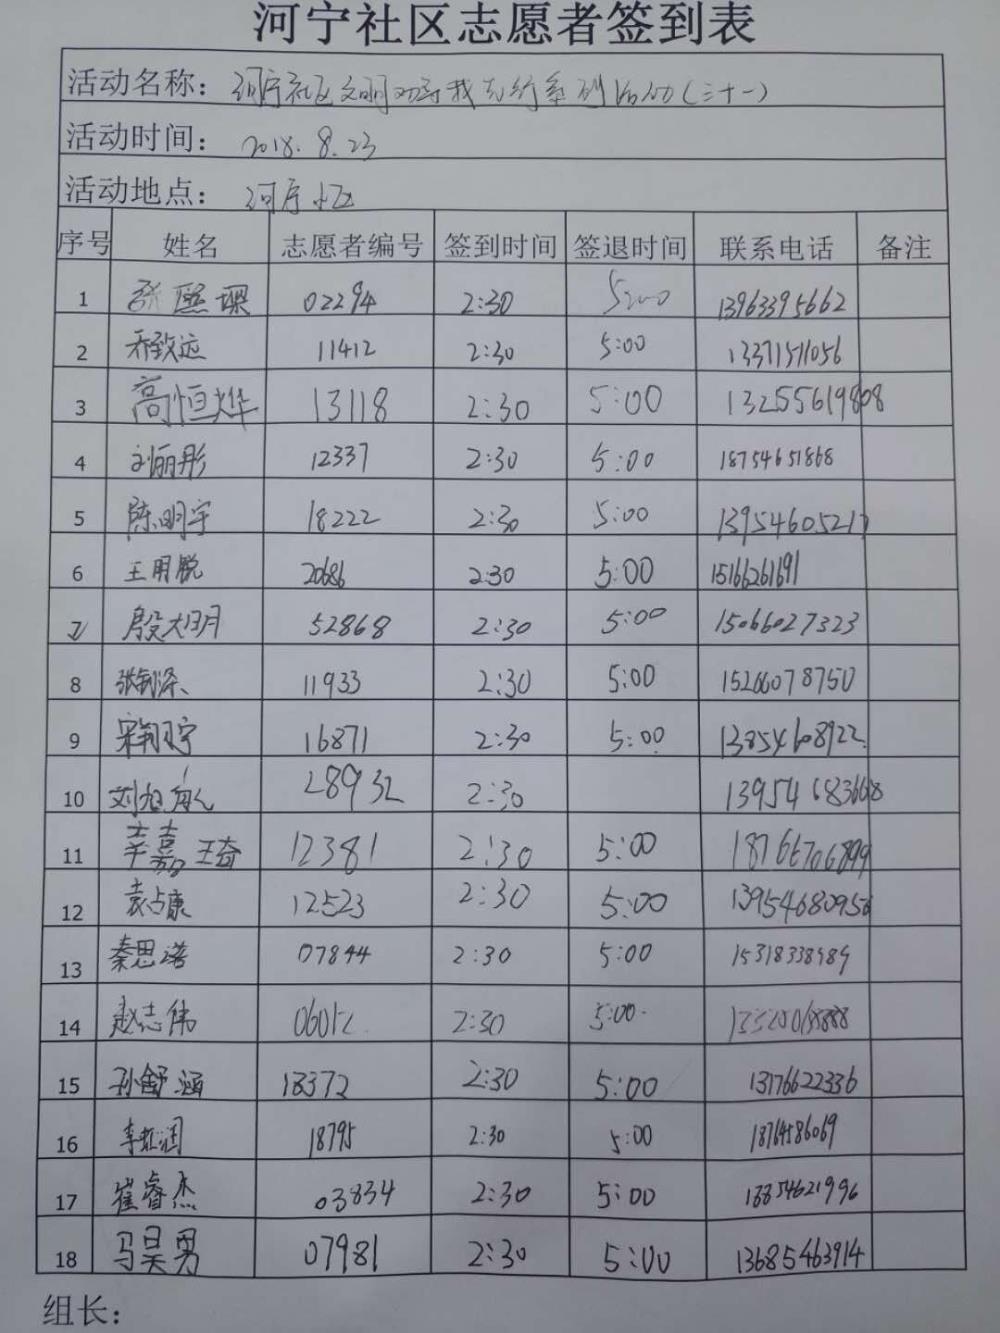 河宁社区志愿者签到表
活动名称：河宁社区文明劝导我先行系列活动（三十一）
活动时间：2018.8.23
活动地点：
序号 姓名 志愿者编号 签到时间 签退时间 联系电话 备注
1 02294 2:30 5:00 13963395662
2 乔致远 11412 2:30 5:00 13371571056
3 高恒烨 13118 2:30 5:00 13255619808
4 刘丽彤 12337 2:30 5:00 18754651868
5 陈明宇 18222 2:30 5:00 13954605217
6 王明脱 20686 2:30 5:00 15166261691
7 殷大明月 52868 2:30 5:00 15066027323
8 11933 2:30 5:00 15266078750
9 16871 2:30 5:00 13854608922
10 刘旭航 28932 2:30 13954683668
11 辛嘉王奇 12381 2:30 5:00 18766706899
12 袁占康 12523 2:30 5:00 13954680950
13 秦思诺 07844 2:30 5:00 15318338989
14 赵志伟 06012 2:30 5:00
15 孙舒涵 18372 2:30 5:00 13176622336
16 18795 2:30 5:00 18764586069
17 崔睿杰 03834 2:30 5:00 18854621996
18 马昊男 07981 2:30 5:00 13685463914
组长：